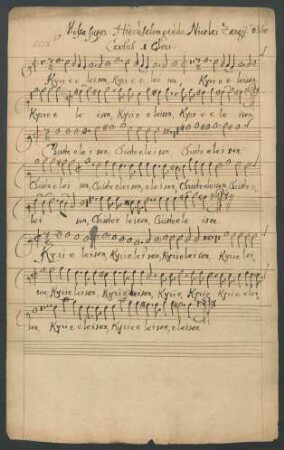 Missa super Hierusalem gaude Nicolai Zangij 6 Voc
Cantus 1 Chori
Kyrie eleison, Kyrie eleison, Kyrie eleison
Kyrie eleison, Kyrie eleison, Kyrie eleison
Christe eleison, Christe eleison, Christe eleison
Christe eleison, Christe eleison, eleison, Christe eleison, Christe e
leison, Christe eleison, Christe eleison
Kyrie eleison, Kyrie eleison, Kyrie eleison, Kyrie elei
son, Kyrie eleison, Kyrie eleison, Kyrie, Kyrie, Kyrie elei
son, Kyrie eleison, Kyrie eleison, eleison